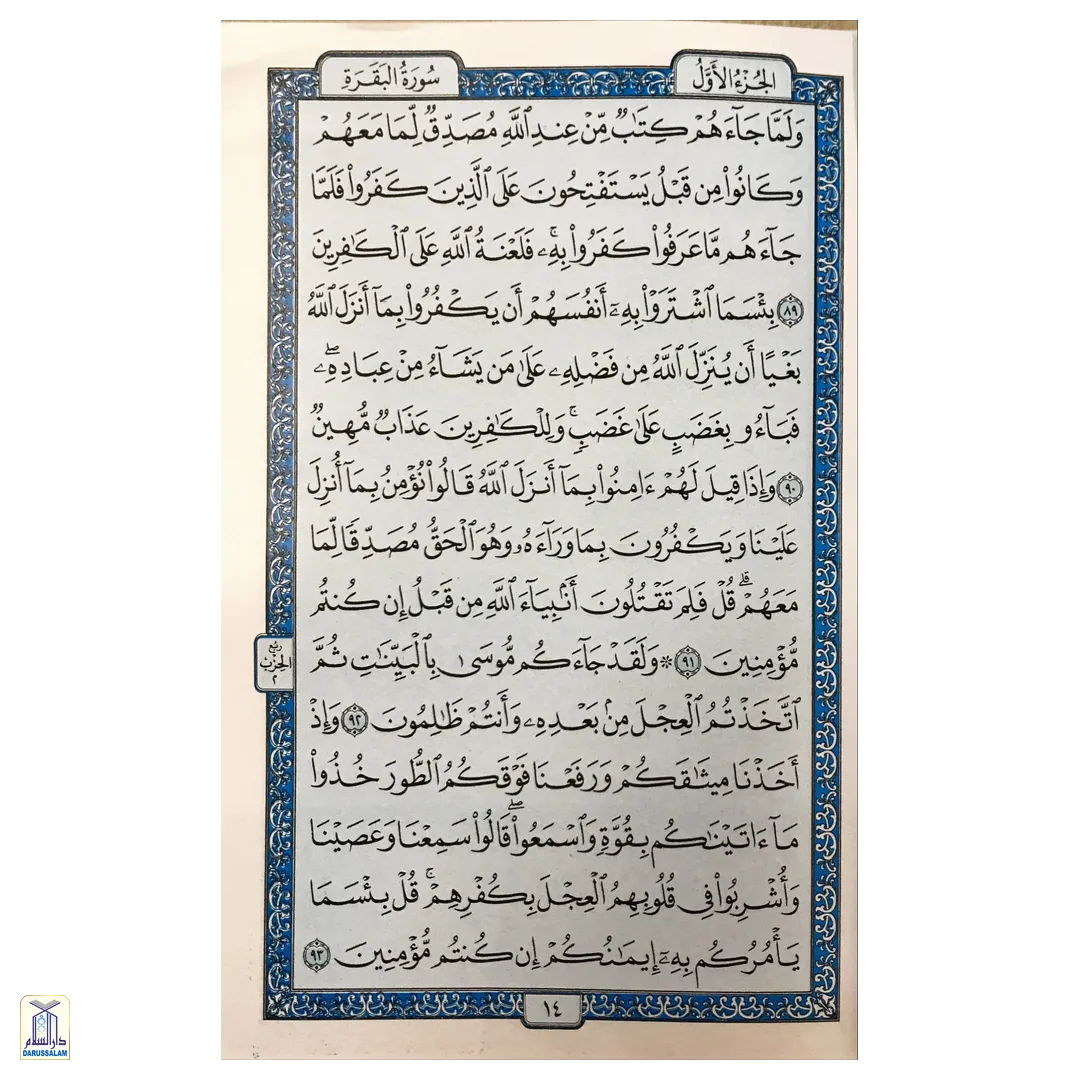 الجُزْءُ الأَوَّلُ
سُورَةُ البَقَرَةِ
وَلَمَّا جَآءَهُمْ كِتَٰبٌ مِّنْ عِندِ ٱللَّهِ مُصَدِّقٌ لِّمَا مَعَهُمْ
وَكَانُوا۟ مِن قَبْلُ يَسْتَفْتِحُونَ عَلَى ٱلَّذِينَ كَفَرُوا۟ فَلَمَّا
جَآءَهُم مَّا عَرَفُوا۟ كَفَرُوا۟ بِهِۦ ۚ فَلَعْنَةُ ٱللَّهِ عَلَى ٱلْكَٰفِرِينَ
٨٩ بِئْسَمَا ٱشْتَرَوْا۟ بِهِۦٓ أَنفُسَهُمْ أَن يَكْفُرُوا۟ بِمَآ أَنزَلَ ٱللَّهُ
بَغْيًا أَن يُنَزِّلَ ٱللَّهُ مِن فَضْلِهِۦ عَلَىٰ مَن يَشَآءُ مِنْ عِبَادِهِۦ ۖ
فَبَآءُو بِغَضَبٍ عَلَىٰ غَضَبٍ ۚ وَلِلْكَٰفِرِينَ عَذَابٌ مُّهِينٌ
٩٠ وَإِذَا قِيلَ لَهُمْ ءَامِنُوا۟ بِمَآ أَنزَلَ ٱللَّهُ قَالُوا۟ نُؤْمِنُ بِمَآ أُنزِلَ
عَلَيْنَا وَيَكْفُرُونَ بِمَا وَرَآءَهُۥ وَهُوَ ٱلْحَقُّ مُصَدِّقًا لِّمَا
مَعَهُمْ ۗ قُلْ فَلِمَ تَقْتُلُونَ أَنۢبِيَآءَ ٱللَّهِ مِن قَبْلُ إِن كُنتُم
مُّؤْمِنِينَ ٩١ * وَلَقَدْ جَآءَكُم مُّوسَىٰ بِٱلْبَيِّنَٰتِ ثُمَّ
ٱتَّخَذْتُمُ ٱلْعِجْلَ مِنۢ بَعْدِهِۦ وَأَنتُمْ ظَٰلِمُونَ ٩٢ وَإِذْ
أَخَذْنَا مِيثَٰقَكُمْ وَرَفَعْنَا فَوْقَكُمُ ٱلطُّورَ خُذُوا۟
مَآ ءَاتَيْنَٰكُم بِقُوَّةٍ وَٱسْمَعُوا۟ ۖ قَالُوا۟ سَمِعْنَا وَعَصَيْنَا
وَأُشْرِبُوا۟ فِى قُلُوبِهِمُ ٱلْعِجْلَ بِكُفْرِهِمْ ۚ قُلْ بِئْسَمَا
يَأْمُرُكُم بِهِۦٓ إِيمَٰنُكُمْ إِن كُنتُم مُّؤْمِنِينَ ٩٣
ربع
الحزب
٢
١٤
دارالسلام
DARUSSALAM